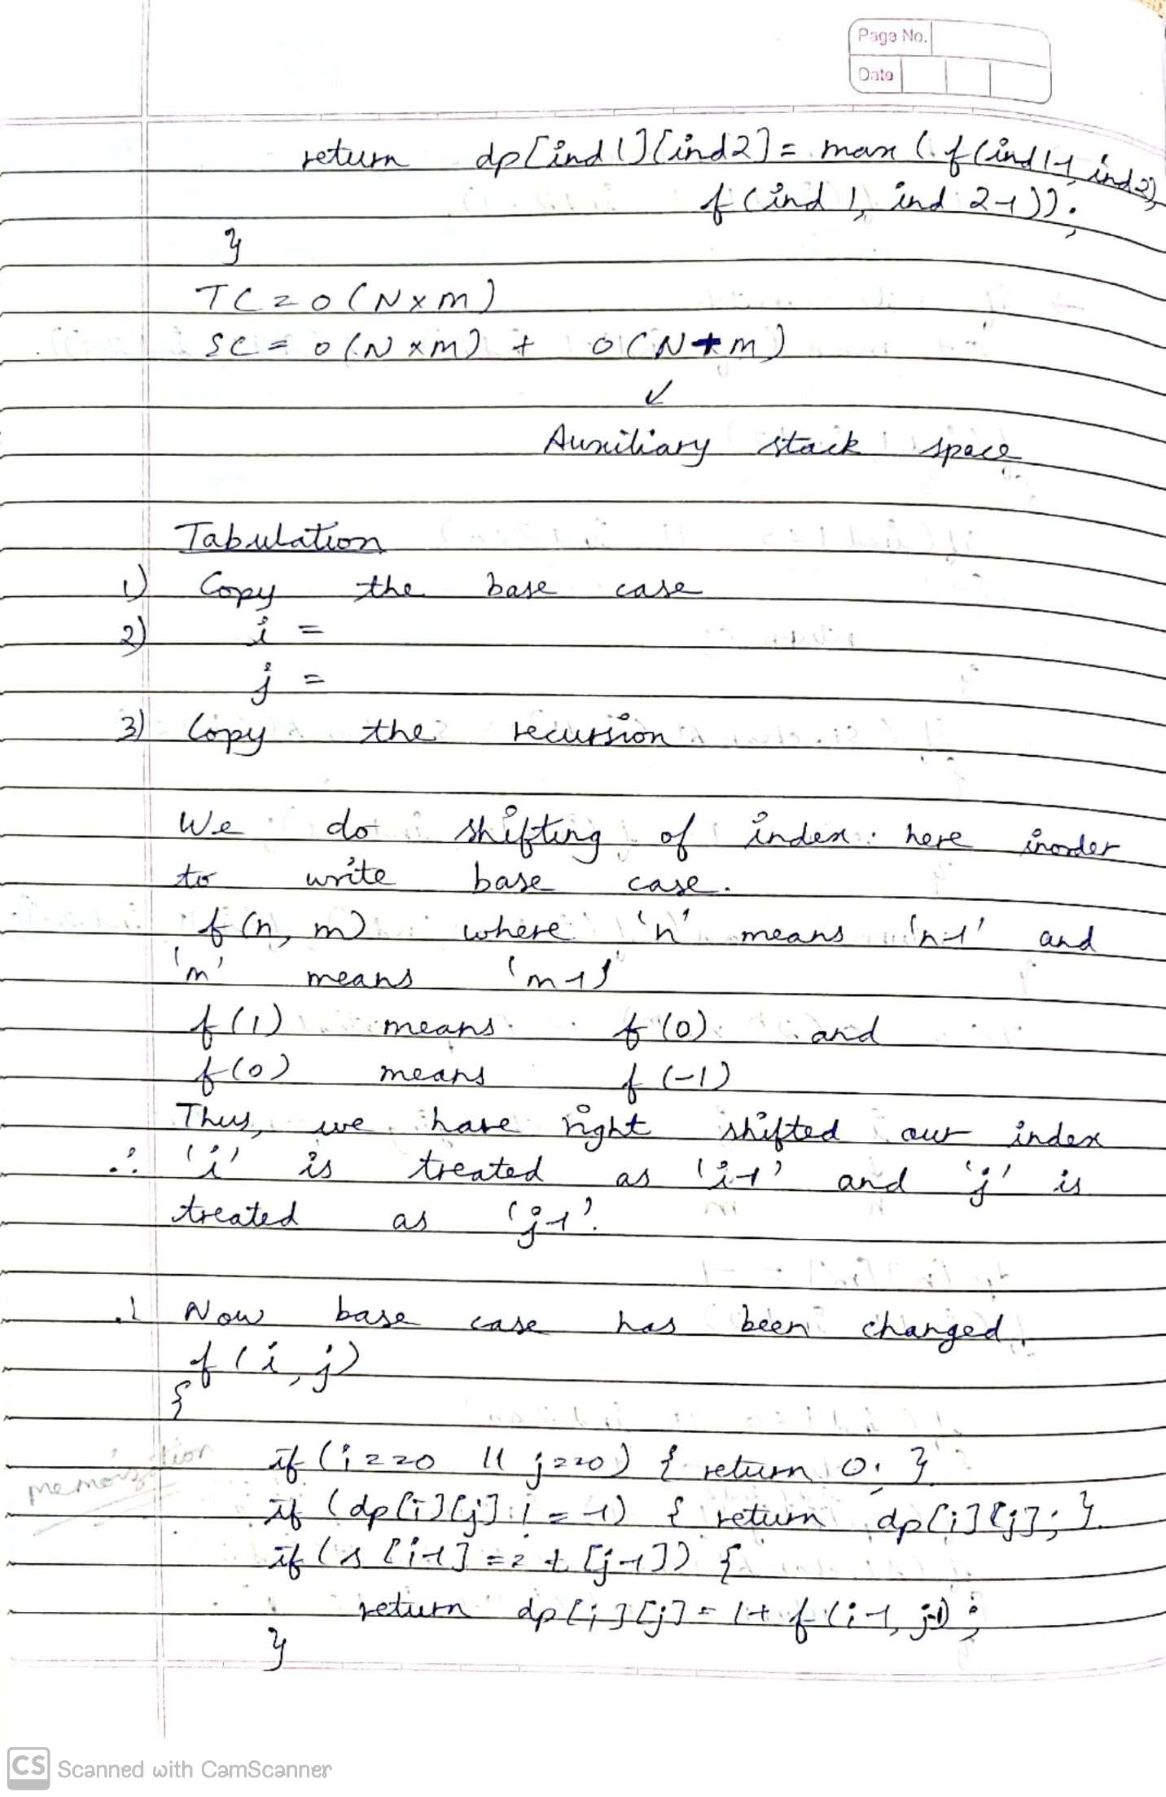 Page No.
Date
return dp[ind1][ind2] = max (f(ind1-1, ind2),
f(ind1, ind2-1));
}
TC = O(N×m)
SC = O(N×m) + O(N+m)
↙
Auxiliary stack space
Tabulation
1) Copy the base case
2) i =
j =
3) Copy the recursion
We do shifting of index here inorder
to write base case.
f(n, m) where 'n' means 'n-1' and
'm' means 'm-1'
f(1) means f(0) and
f(0) means f(-1)
Thus, we have right shifted our index
∴ 'i' is treated as 'i-1' and 'j' is
treated as 'j-1'.
Now base case has been changed.
f(i, j)
{
if (i==0 || j==0) { return 0; }
memoization
if (dp[i][j] != -1) { return dp[i][j]; }
if (s[i-1] == t[j-1]) {
return dp[i][j] = 1+ f(i-1, j-1);
}
CS Scanned with CamScanner